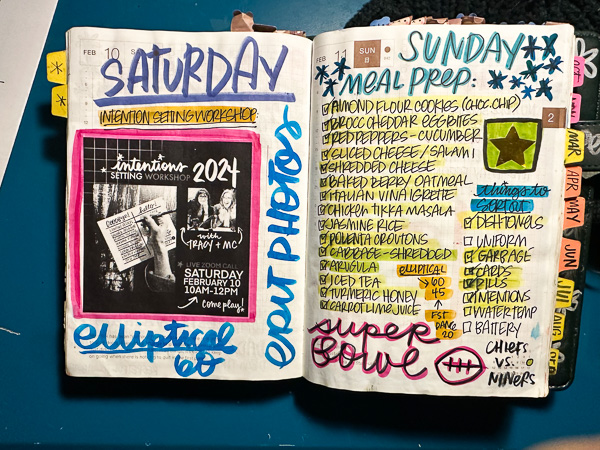 FEB 10
SATURDAY
INTENTION SETTING WORKSHOP:
intentions
SETTING WORKSHOP 2024
with
TRACY + MC
LIVE ZOOM CALL
SATURDAY
FEBRUARY 10
10AM-12PM
come play!
EDIT PHOTOS
elliptical
60
FEB 11 SUN
SUNDAY
MEAL PREP:
ALMOND FLOUR COOKIES (CHOC CHIP)
BROCC CHEDDAR EGG BITES
RED PEPPERS - CUCUMBER
SLICED CHEESE / SALAMI
SHREDDED CHEESE
BAKED BERRY / OATMEAL
ITALIAN VINAIGRETTE
CHICKEN TIKKA MASALA
JASMINE RICE
POLENTA CROUTONS
CABBAGE - SHREDDED
ARUGULA
ICED TEA
TURMERIC HONEY
CARROT LIME JUICE
ELLIPTICAL
60
45
↑
FST
DANG
20
things to
SORT OUT
DISH TOWELS
UNIFORM
GARBAGE
CARDS
BILLS
INTENTIONS
WATER TEMP
BATTERY
super
bowl
CHIEFS
VS.
NINERS
2
MAR
APR
MAY
JUN
JUL